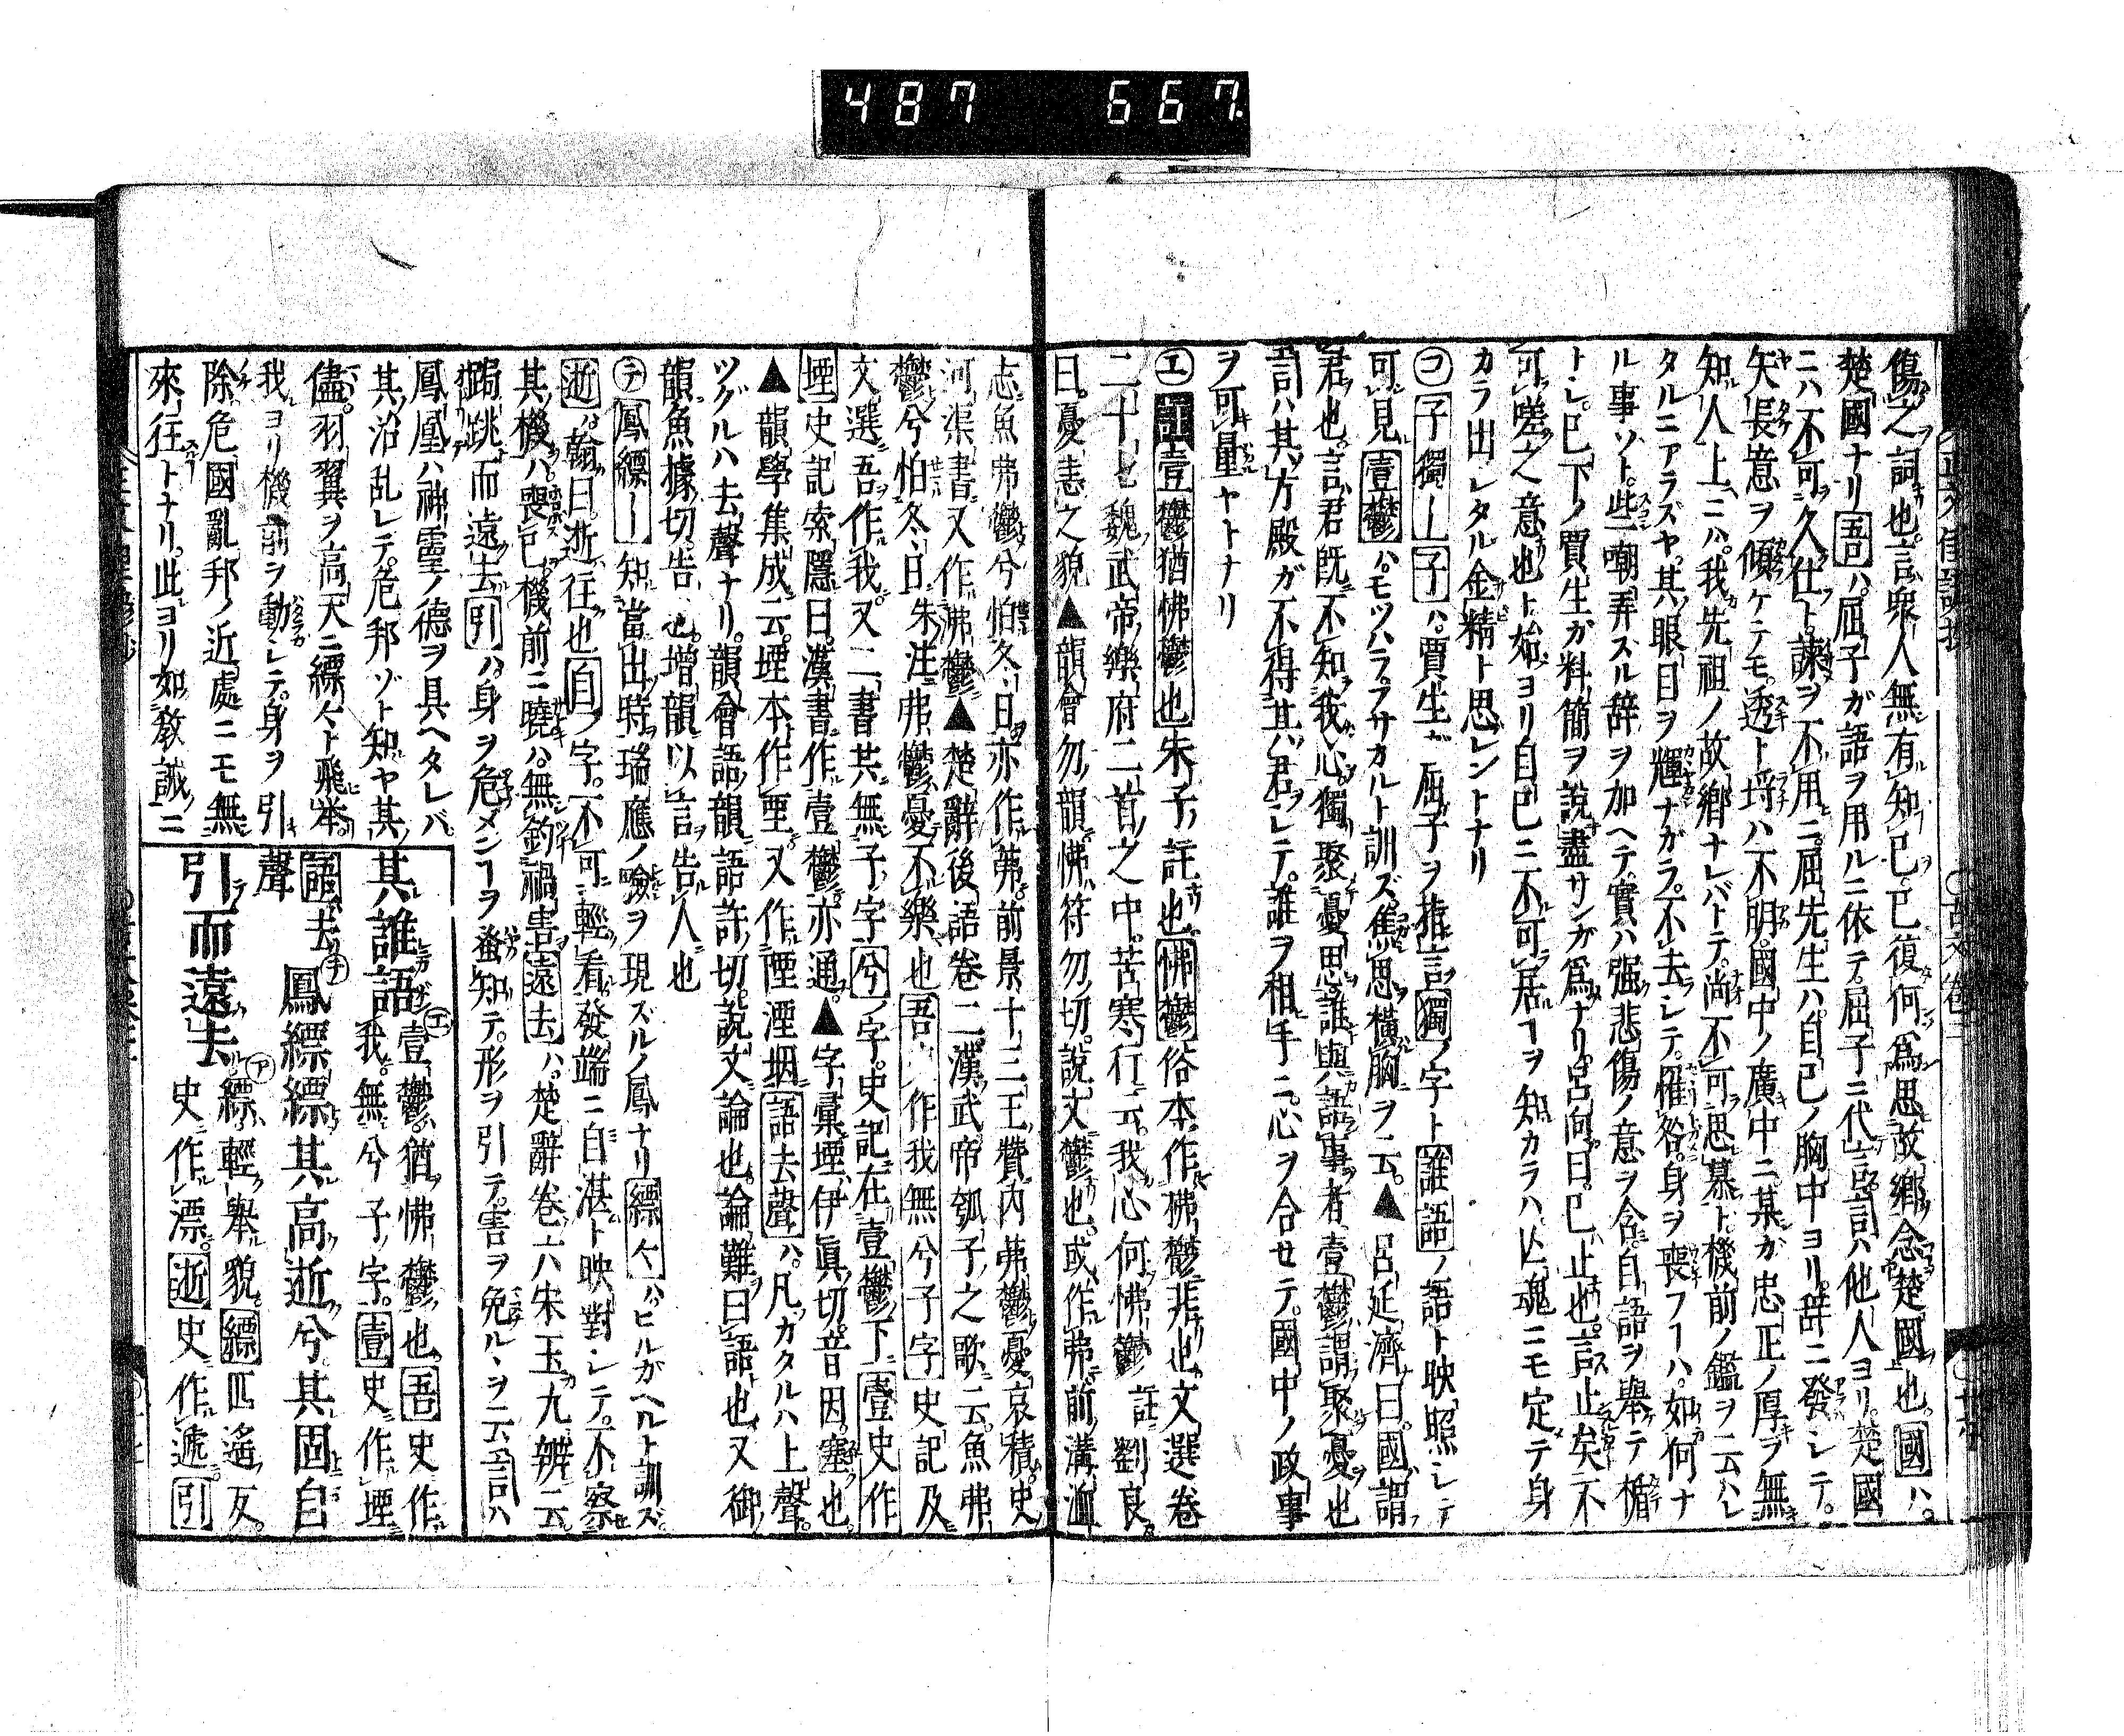 487 667.
傷之詞也言衆人無有知已已復何爲思故鄉念楚國也國ハ
楚國ナリ吾ハ屈子ガ語ヲ用ルニ依テ屈子ニ代言詞ハ他人ヨリ楚國
ニハ不可久仕ト諫ヲ不用ニ屈先生ハ自己ノ胸中ヨリ辞ニ發シテ
矢長意ヲ傾ケテモ透ト埒ハ不明國中ノ廣中ニ某ガ忠正ノ厚ヲ無
知人上ニハ我先祖ノ故鄉ナレバトテ尚不可思慕ト機前ノ鑑ヲ云ハレ
タルニアラズヤ其眼目ヲ輝ナガラ不去レテ罹咎身ヲ喪フヿハ如何ナ
ル事ゾト些嘲弄スル辞ヲ加ヘテ實ハ强悲傷ノ意ヲ含自語ヲ擧テ楯
トシ已下ノ買生ガ料簡ヲ說盡サンガ爲ナリ呂向曰已止也言止矣不
可嗟之意也ト如ヨリ自已ニ不可居ヿヲ知カラハ魂ニモ定テ身
カラ出レタル金精ト思レントナリ
コ子獨ー子ハ賈生ガ屈子ヲ指言獨ノ字ト誰語ノ語ト映照シテ
可見壹鬱ハモツハラフサカルト訓ズ焦思横胸ヲ云▲呂延濟曰國謂
君也言君既不知我心獨聚憂思誰與語事者壹鬱謂聚憂也
言ハ其方殿ガ不得其君レテ誰ヲ相手ニ心ヲ合セテ國中ノ政事
ヲ可量ヤトナリ
エ註壹鬱猶怫鬱也朱子註也怫鬱俗本作佛鬱非也文選卷
二十七魏武帝樂府二首之中苦寒行云我心何怫鬱註劉良
曰憂恚之貌▲韻會勿韻怫符勿切說文鬱也或作弗前溝洫
志魚弗鬱兮怕冬日亦作茀前景十三王贊內茀鬱憂哀積史
河渠書又作沸鬱▲楚辭後語卷二漢武帝瓠子之歌云魚弗
鬱兮怕冬日朱注弗鬱憂不樂也吾史作我無兮子字史記及
文選吾作我又二書其無子字兮ノ字史記在壹鬱下壹史作
堙史記索隱曰漢書作壹鬱亦通▲字彙堙伊眞切音因塞也
▲韻學集成云堙本作垔又作陻湮垇語去聲ハ凡カタルハ上聲
ツグルハ去聲ナリ韻會語韻語許切說文論也論難曰語也又御
韻魚據切告也增韻以言告人也
テ鳳縹ー知當出時瑞應ノ驗ヲ現ズルノ鳳ナリ縹々ハヒルガヘルト訓ズ
逝ハ翰曰逝往也自ノ字不可輕看發端ニ自湛ト映對シテ不察
其機ハ喪已機前ニ曉ハ無釣禍害遠去ハ楚辭卷六宋玉九辨云
跼跳而遠去引ハ身ヲ危メンヿヲ蚤知テ形ヲ引テ害ヲ免ルヽヲ云言ハ
鳳凰ハ神靈ノ德ヲ具ヘタレバ
其治乱レテ危邦ゾト知ヤ其
儘羽翼ヲ高天ニ縹々ト飛擧
我ヨリ機前ヲ動レテ身ヲ引
除危國亂邦ノ近處ニモ無
來往トナリ此ヨリ如敎誡ニ
其誰語 壹鬱猶怫鬱也吾史作
我無兮子字壹史作堙
語去聲 鳳縹縹其高逝兮其固自
引而遠去 縹輕擧貌縹匹遙反
史作漂逝史作遰引